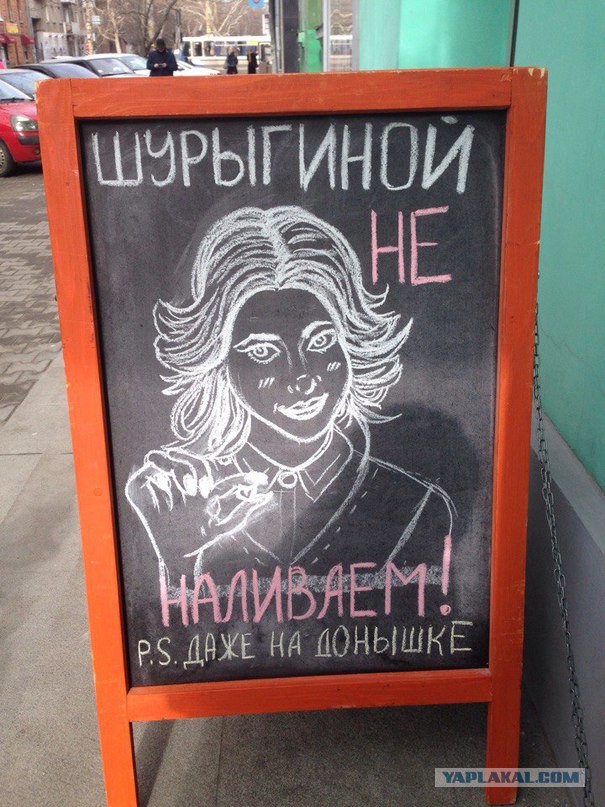 ШУРЫГИНОЙ
НЕ
НАЛИВАЕМ!
P.S. ДАЖЕ НА ДОНЫШКЕ
YAPLAKAL.COM